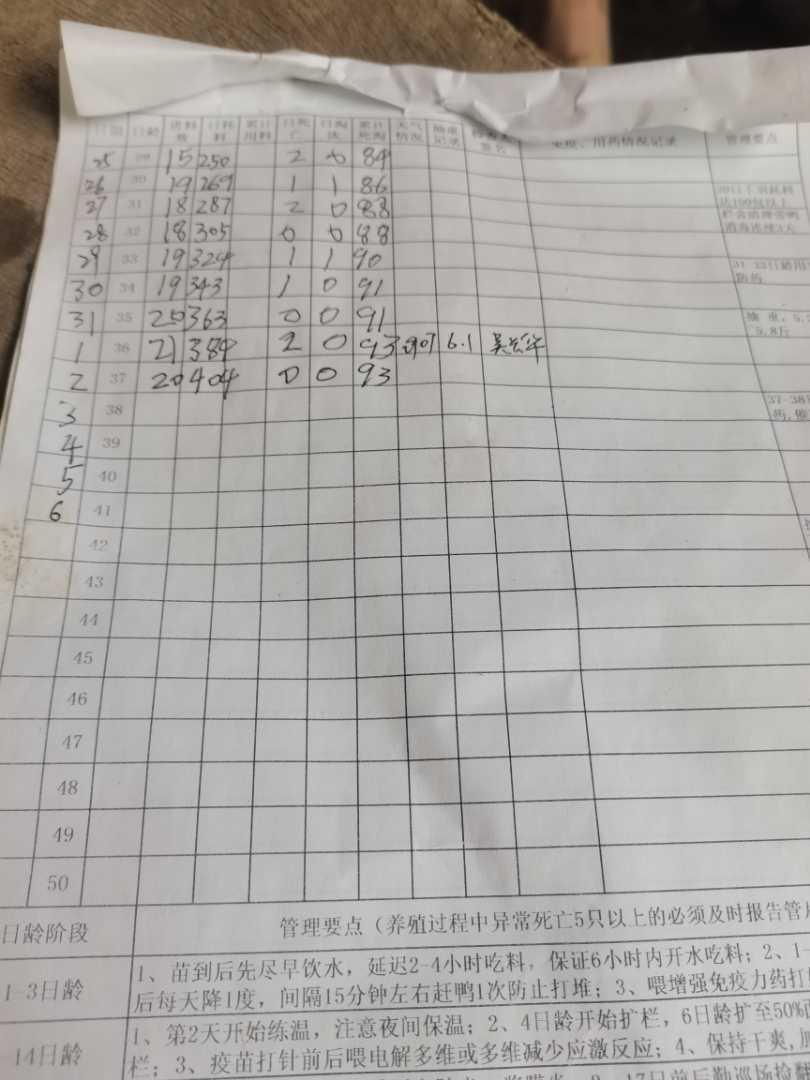 日龄 进料数 日耗料 累计用料 日死亡 日淘汰 累计死淘 天气情况 抽重记录 签名 免疫、用药情况记录 管理要点
25 29 15 250 2 0 84
26 30 19 269 1 1 86
27 31 18 287 2 0 88
28 32 18 305 0 0 88
29 33 19 324 1 1 90
30 34 19 343 1 0 91
31 35 20 363 0 0 91
1 36 21 384 2 0 93 6.1
2 37 20 404 0 0 93
3 38
4 39
5 40
6 41
42
43
44
45
46
47
48
49
50
消毒连续3天
防药
5.8斤
37-38
日龄阶段 管理要点（养殖过程中异常死亡5只以上的必须及时报告管
1-3日龄 1、苗到后先尽早饮水，延迟2-4小时吃料，保证6小时内开水吃料；2、1-
后每天降1度，间隔15分钟左右赶鸭1次防止打堆；3、喂增强免疫力药打
14日龄 1、第2天开始练温，注意夜间保温；2、4日龄开始扩栏，6日龄扩至50%
栏；3、疫苗打针前后喂电解多维或多维减少应激反应；4、保持干爽,